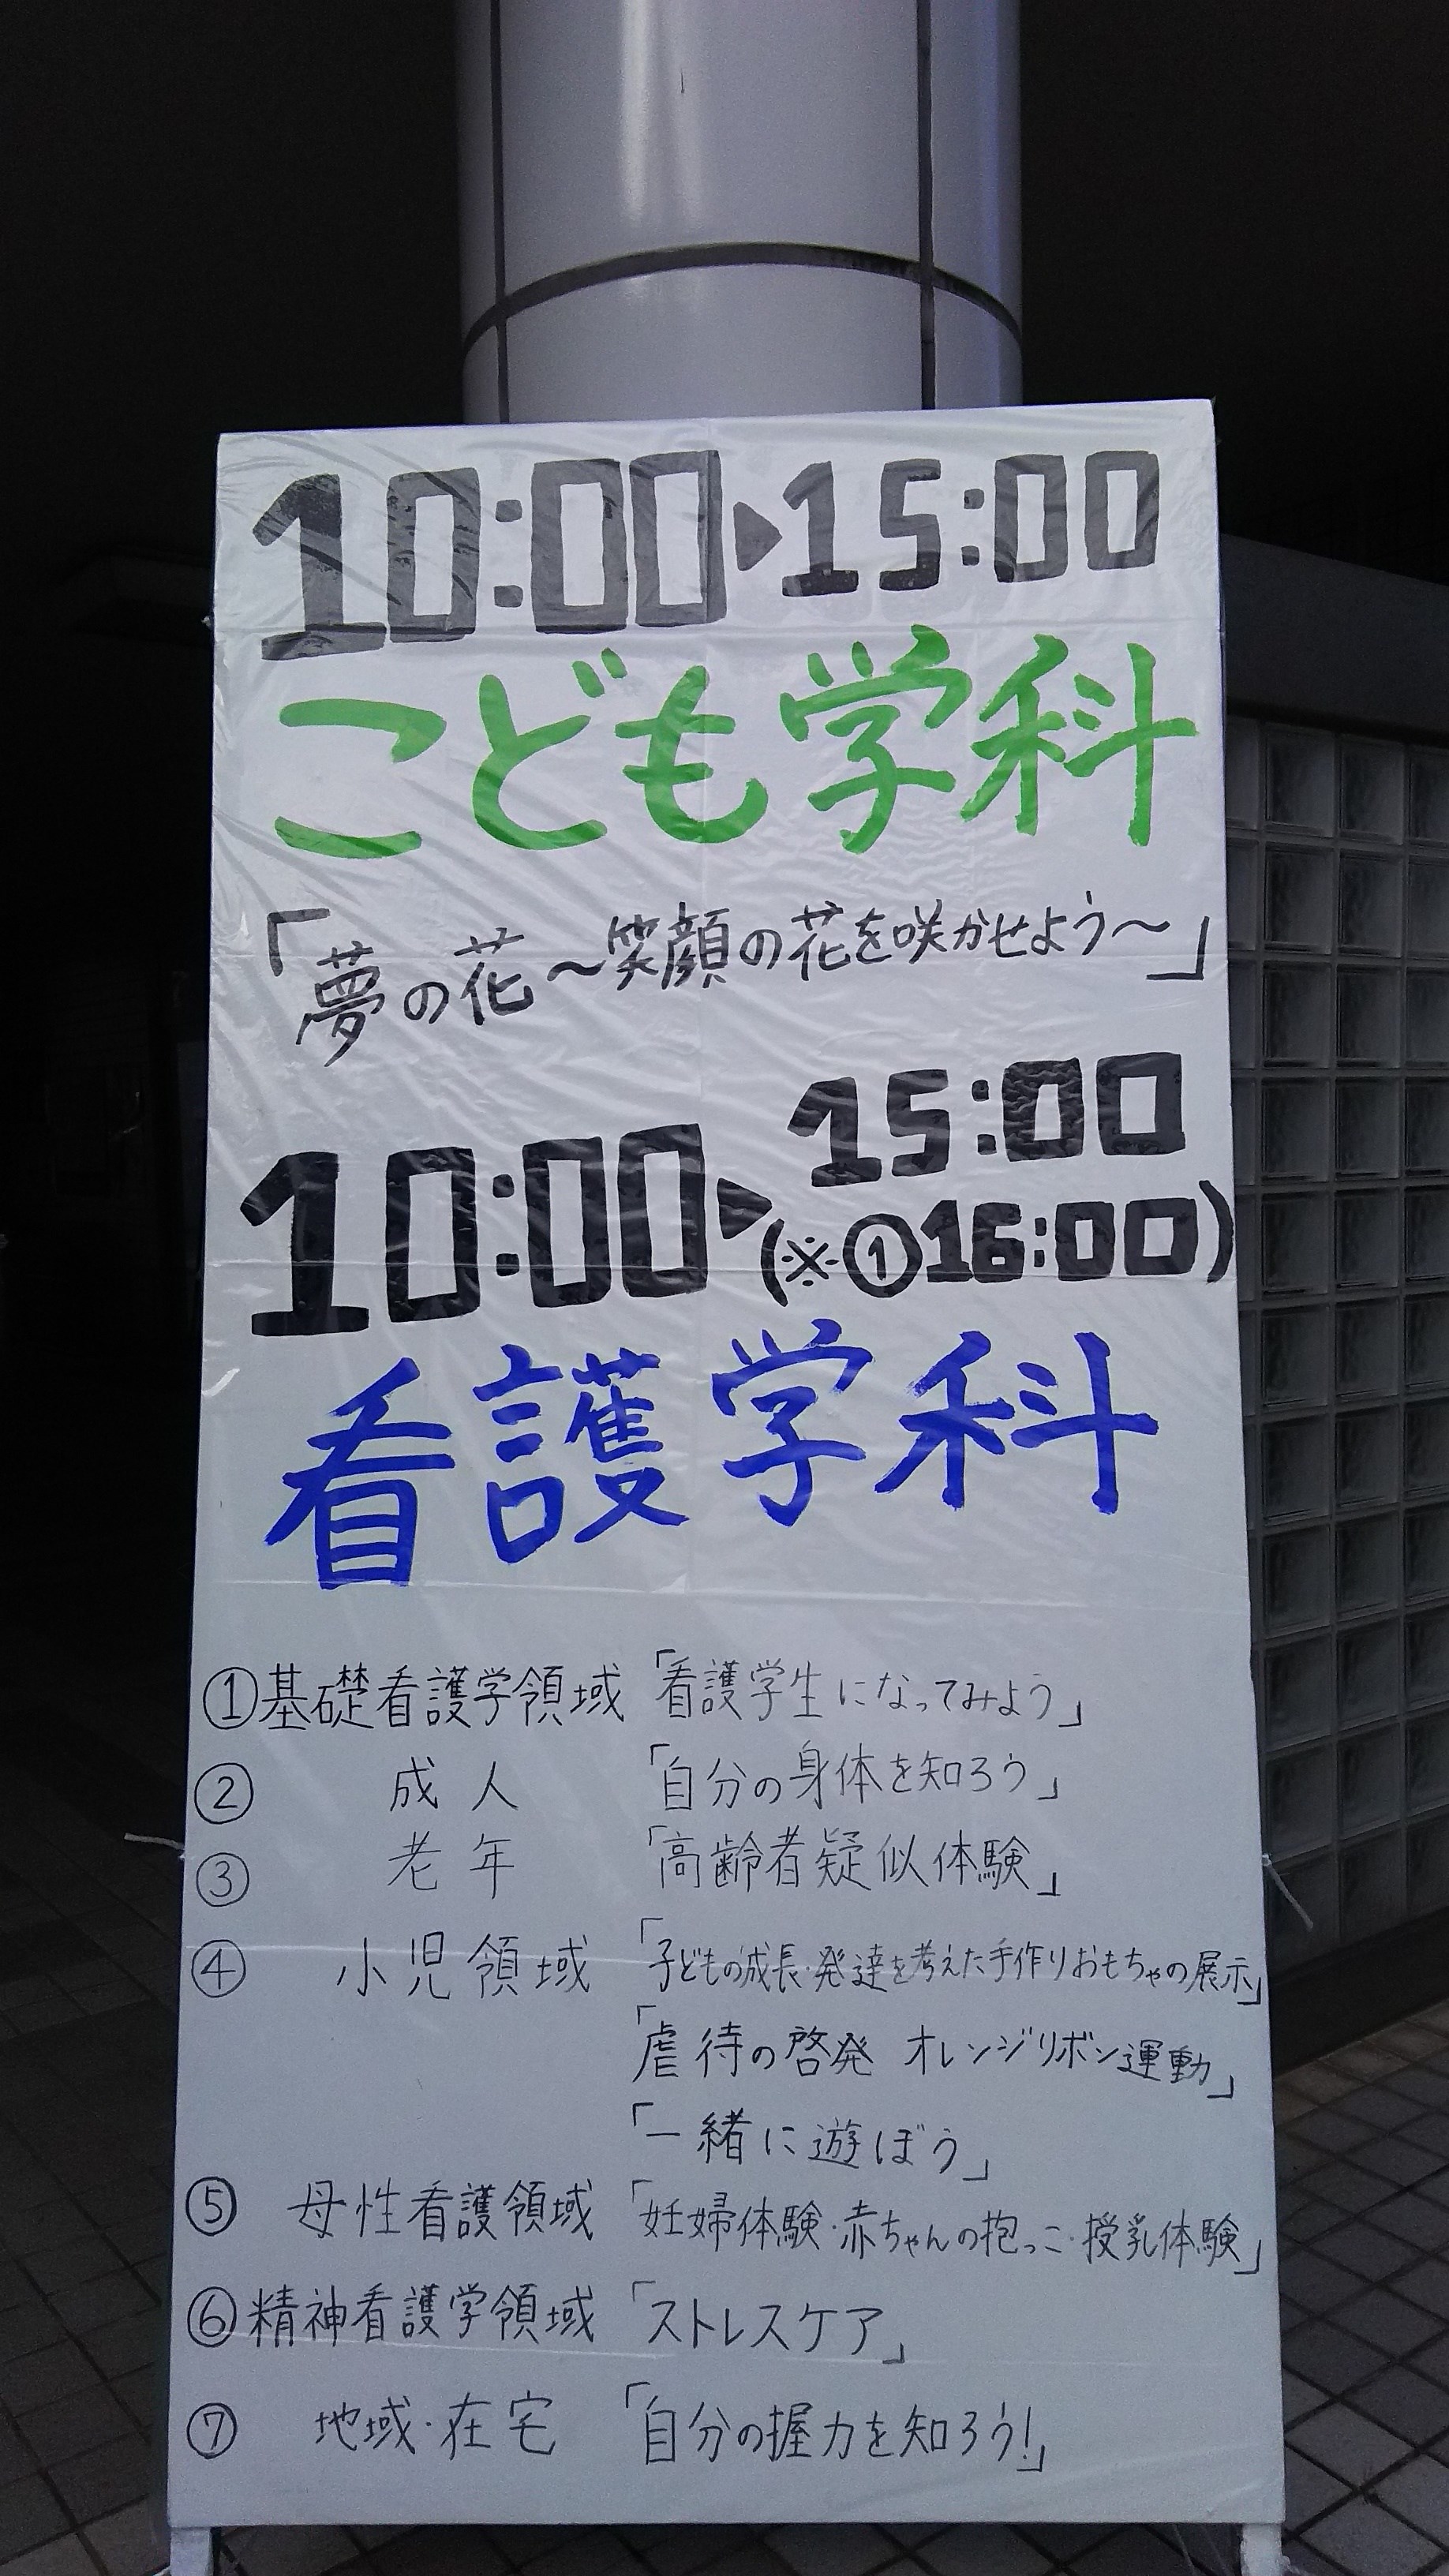 10:00▶15:00
こども学科
「夢の花～笑顔の花を咲かせよう～」
10:00▶15:00
(※①16:00)
看護学科
①基礎看護学領域「看護学生になってみよう」
② 成人 「自分の身体を知ろう」
③ 老年 「高齢者疑似体験」
④ 小児領域 「子どもの成長・発達を考えた手作りおもちゃの展示」
「虐待の啓発 オレンジリボン運動」
「一緒に遊ぼう」
⑤ 母性看護領域 「妊婦体験・赤ちゃんの抱っこ・授乳体験」
⑥精神看護学領域「ストレスケア」
⑦ 地域・在宅 「自分の握力を知ろう!」